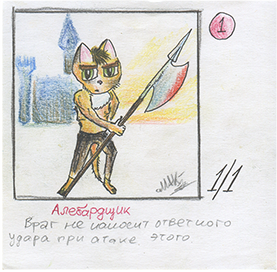 1
1/1
Алебардщик
Враг не наносит ответного
удара при атаке этого